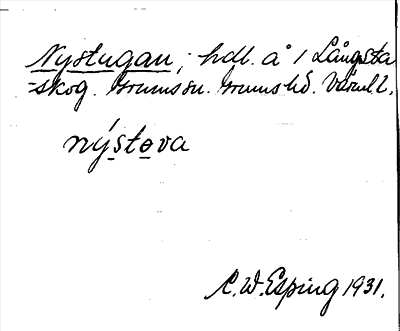 Nystugan, hdl. å 1 Långsta
-skog. Grums sn. Grums hd. Värml.
nýstova
C. W. Esping 1931.